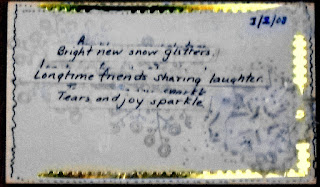 3/2/08
Bright new snow glitters
Longtime friends sharing laughter.
Tears and joy sparkle